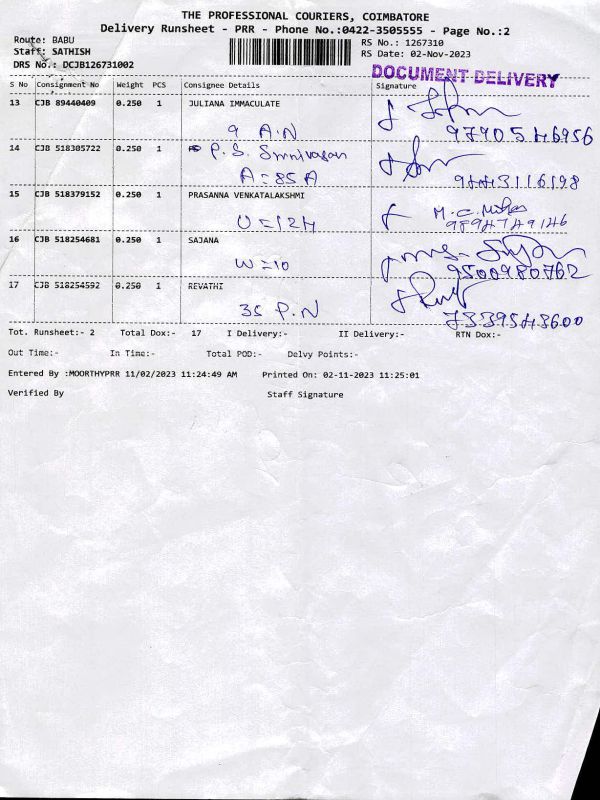 THE PROFESSIONAL COURIERS, COIMBATORE
Delivery Runsheet - PRR - Phone No.:0422-3505555 - Page No.:2
Route: BABU
RS No.: 1267310
Staff: SATHISH
RS Date: 02-Nov-2023
DRS No.: DCJB126731002
DOCUMENT DELIVERY
S No Consignment No Weight PCS Consignee Details Signature
13 CJB 89440409 0.250 1 JULIANA IMMACULATE
9 A.N 9790546956
14 CJB 518305722 0.250 1 P.S. Srinivasan
A=85A 9443116198
15 CJB 518379152 0.250 1 PRASANNA VENKATALAKSHMI
U=12H 9894749146
16 CJB 518254681 0.250 1 SAJANA
W=10 9500980762
17 CJB 518254592 0.250 1 REVATHI
35 P.N 7339543600
Tot. Runsheet:- 2 Total Dox:- 17 I Delivery:- II Delivery:- RTN Dox:-
Out Time:- In Time:- Total POD:- Delvy Points:-
Entered By :MOORTHYPRR 11/02/2023 11:24:49 AM Printed On: 02-11-2023 11:25:01
Verified By Staff Signature